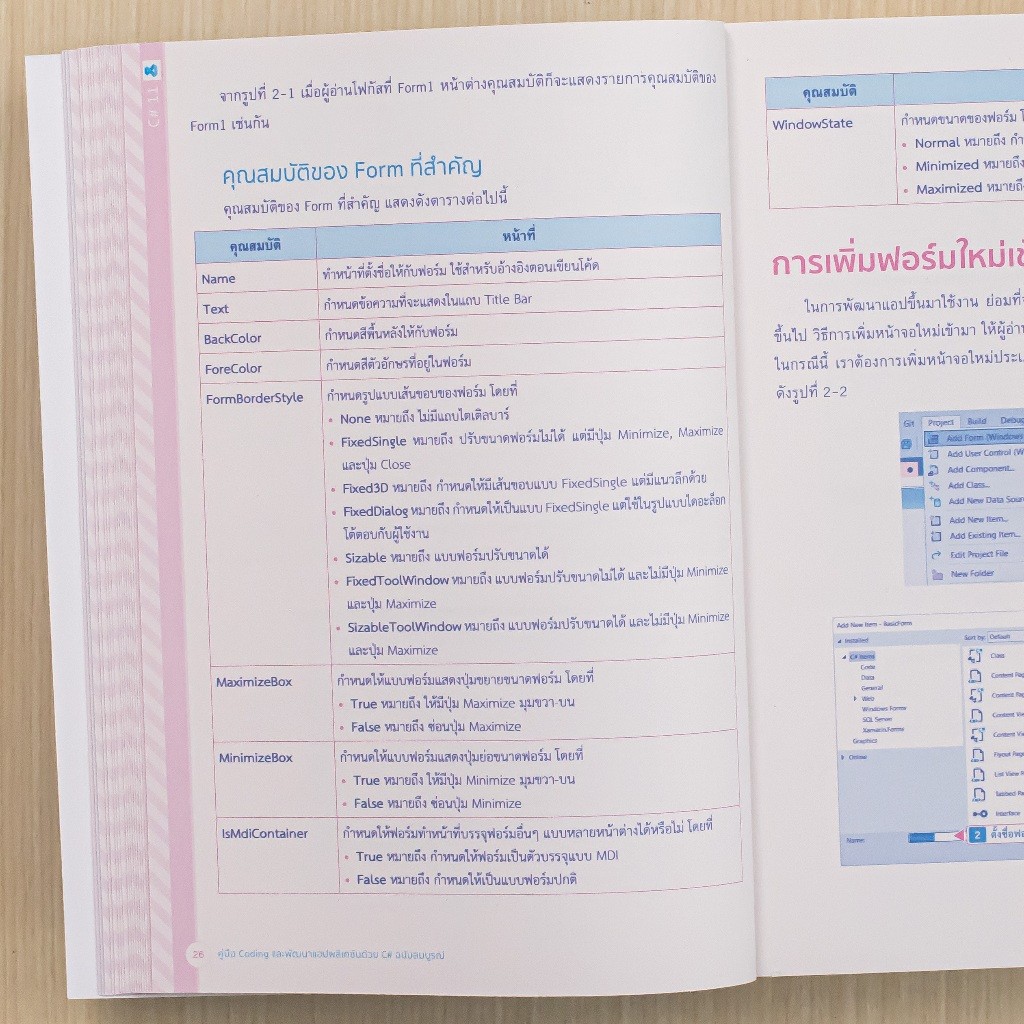 C# 11
จากรูปที่ 2-1 เมื่อผู้อ่านโฟกัสที่ Form1 หน้าต่างคุณสมบัติก็จะแสดงรายการคุณสมบัติของ
Form1 เช่นกัน
คุณสมบัติของ Form ที่สำคัญ
คุณสมบัติของ Form ที่สำคัญ แสดงดังตารางต่อไปนี้
คุณสมบัติ หน้าที่
Name ทำหน้าที่ตั้งชื่อให้กับฟอร์ม ใช้สำหรับอ้างอิงตอนเขียนโค้ด
Text กำหนดข้อความที่จะแสดงในแถบ Title Bar
BackColor กำหนดสีพื้นหลังให้กับฟอร์ม
ForeColor กำหนดสีตัวอักษรที่อยู่ในฟอร์ม
FormBorderStyle กำหนดรูปแบบเส้นขอบของฟอร์ม โดยที่
• None หมายถึง ไม่มีแถบไตเติลบาร์
• FixedSingle หมายถึง ปรับขนาดฟอร์มไม่ได้ แต่มีปุ่ม Minimize, Maximize
และปุ่ม Close
• Fixed3D หมายถึง กำหนดให้มีเส้นขอบแบบ FixedSingle แต่มีแนวลึกด้วย
• FixedDialog หมายถึง กำหนดให้เป็นแบบ FixedSingle แต่ใช้ในรูปแบบไดอะล็อก
โต้ตอบกับผู้ใช้งาน
• Sizable หมายถึง แบบฟอร์มปรับขนาดได้
• FixedToolWindow หมายถึง แบบฟอร์มปรับขนาดไม่ได้ และไม่มีปุ่ม Minimize
และปุ่ม Maximize
• SizableToolWindow หมายถึง แบบฟอร์มปรับขนาดได้ และไม่มีปุ่ม Minimize
และปุ่ม Maximize
MaximizeBox กำหนดให้แบบฟอร์มแสดงปุ่มขยายขนาดฟอร์ม โดยที่
• True หมายถึง ให้มีปุ่ม Maximize มุมขวา-บน
• False หมายถึง ซ่อนปุ่ม Maximize
MinimizeBox กำหนดให้แบบฟอร์มแสดงปุ่มย่อขนาดฟอร์ม โดยที่
• True หมายถึง ให้มีปุ่ม Minimize มุมขวา-บน
• False หมายถึง ซ่อนปุ่ม Minimize
IsMdiContainer กำหนดให้ฟอร์มทำหน้าที่บรรจุฟอร์มอื่นๆ แบบหลายหน้าต่างได้หรือไม่ โดยที่
• True หมายถึง กำหนดให้ฟอร์มเป็นตัวบรรจุแบบ MDI
• False หมายถึง กำหนดให้เป็นแบบฟอร์มปกติ
26 คู่มือ Coding และพัฒนาแอปพลิเคชันด้วย C# ฉบับสมบูรณ์
คุณสมบัติ
WindowState กำหนดขนาดของฟอร์ม
• Normal หมายถึง
• Minimized หมายถึง
• Maximized หมายถึง
การเพิ่มฟอร์มใหม่
ในการพัฒนาแอปขึ้นมาใช้งาน ย่อมที่
ขึ้นไป วิธีการเพิ่มหน้าจอใหม่เข้ามา ให้ผู้อ่าน
ในกรณีนี้ เราต้องการเพิ่มหน้าจอใหม่
ดังรูปที่ 2-2
Git Project Build Debug
Add Form (Windows
Add User Control (W
Add Component...
Add Class...
Add New Data Sour
Add New Item...
Add Existing Item...
Edit Project File
New Folder
Add New Item - BasicForm
Installed Sort by: Default
C# Items
Code
Data
General
Web
Windows Forms
SQL Server
Xamarin.Forms
Graphics
Online
Class
Content Pag
Content Pag
Content Vie
Content Vie
Flyout Page
List View P
Tabbed Pa
Interface
Name: 2 ตั้งชื่อฟอ